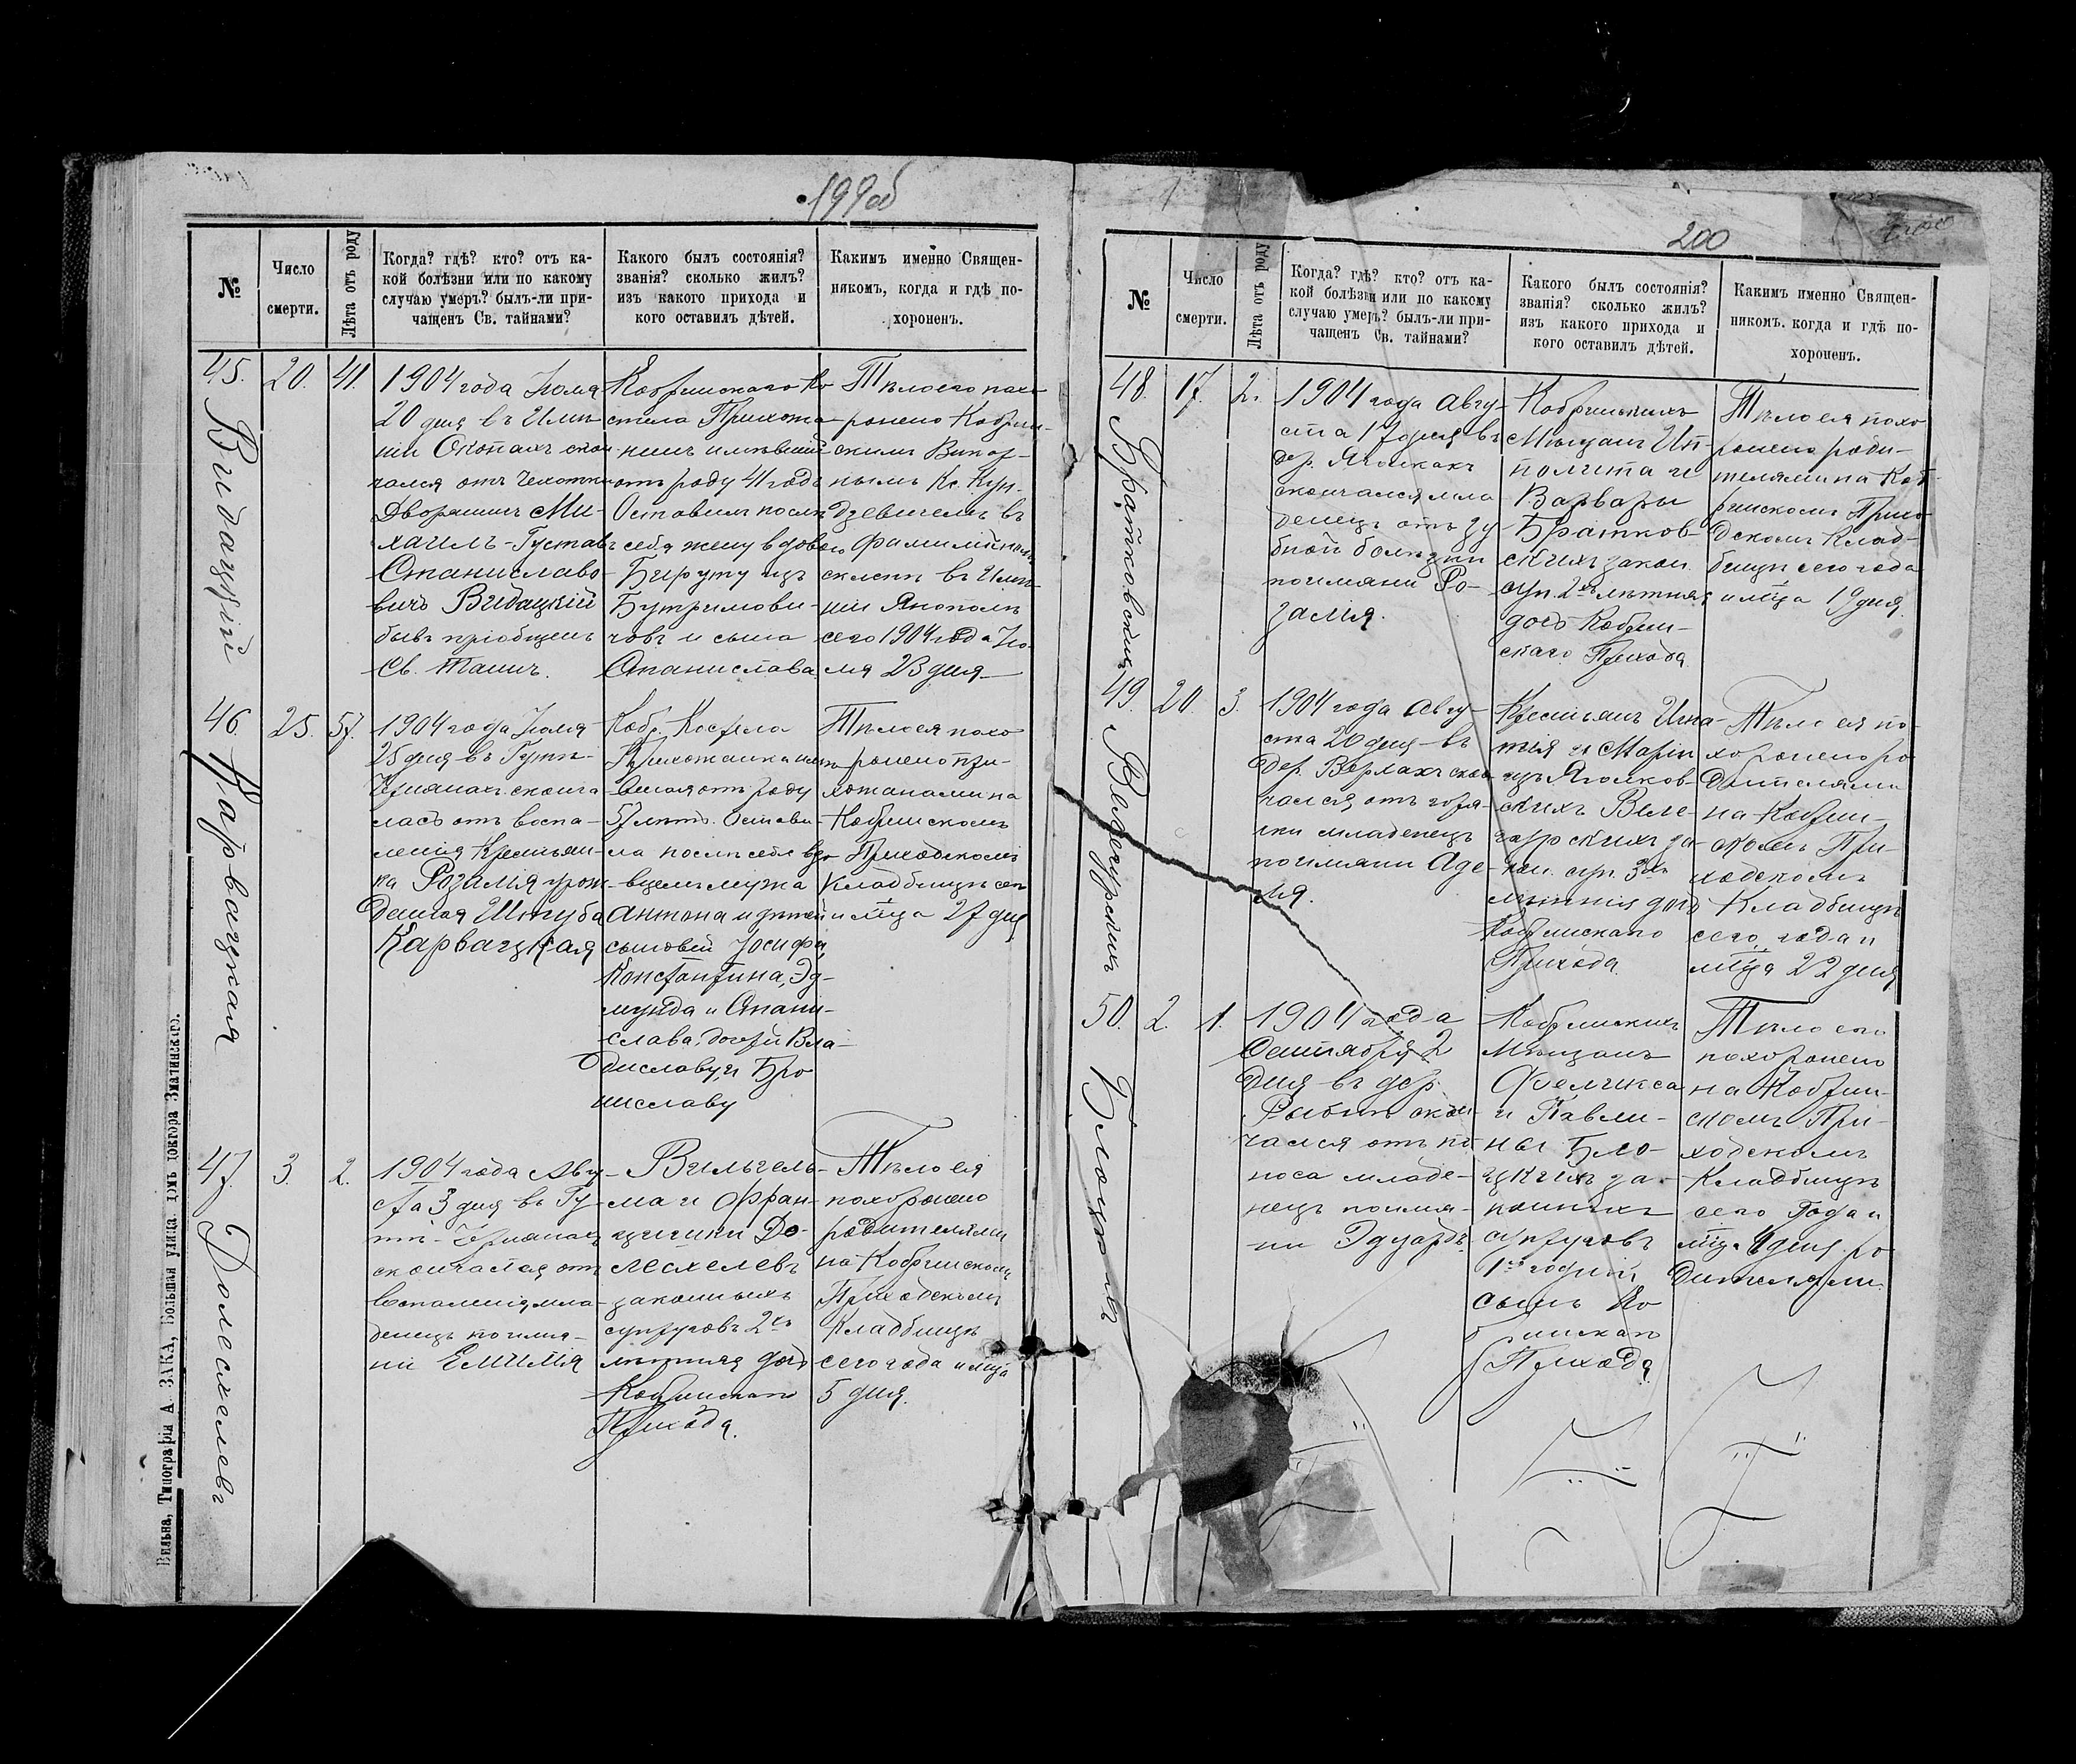 199об
№
Число
смерти.
Лѣта отъ роду
Когда? гдѣ? кто? отъ ка-
кой болѣзни или по какому
случаю умеръ? былъ-ли при-
чащенъ Св. тайнами?
Какого былъ состоянія?
званія? сколько жилъ?
изъ какого прихода и
кого оставилъ дѣтей.
Какимъ именно Священ-
никомъ, когда и гдѣ по-
хороненъ.
45.
Видацкій
20.
41.
1904 года Іюля
20 дня въ Имѣ-
ніи Окопахъ скон
чался отъ чахотки
Дворянинъ Ми-
хаилъ-Густавъ
Станиславо-
вичъ Видацкій
бывъ пріобщенъ
Св. Таинъ.
Кобринскаго Ко
стела Прихожа-
нинъ имѣвшій
отъ роду 41 года
Оставилъ послѣ
себя жену вдовою
Бируту изъ
Бутримови-
човъ и сына
Станислава
Тѣло его похо
ронено Кобрин-
скимъ Викар-
нымъ Кс. Кун-
дзевичемъ въ
Фамилійномъ
склепѣ въ Имѣ-
ніи Янополѣ
сего 1904 года Ію-
ля 23 дня
46.
Карвацкая
25.
57.
1904 года Іюля
25 дня въ Гутѣ-
сконча
лась отъ воспа-
ленія Крестьян-
ка Розалія урож-
денная
Карвацкая
Кобр. Костела
Прихожанка имѣ
вшая отъ роду
57 лѣтъ. Остави-
ла послѣ себя вдо-
вцемъ мужа
Антона и дѣтей
сыновей Іосифа,
Константина, Эд-
мунда и Стани-
слава, дочери Вла-
диславу и Бро
ниславу
Тѣло ея похо
ронено при-
хожанами на
Кобринскомъ
Приходскомъ
Кладбищѣ сего
и мѣца 27 дня
47.
Долехелевъ
3.
2.
1904 года Авгу-
ста 3 дня въ Гу-
тѣ-
скончалася отъ
воспаленія мла-
денецъ по имя-
ни Емилія
Вильгель-
ма и Фран-
цишки До-
лехелевъ
законныхъ
супруговъ 2хъ
лѣтняя дочь
Кобринскаго
Прихода.
Тѣло ея
похоронено
родителями
на Кобринскомъ
Приходскомъ
Кладбищѣ
сего года и мѣца
5 дня.
Вильна, Типографія А. ЗАКА, Большая улица, домъ доктора Змачинскаго.
200
№
Число
смерти.
Лѣта отъ роду
Когда? гдѣ? кто? отъ ка-
кой болѣзни или по какому
случаю умеръ? былъ-ли при-
чащенъ Св. тайнами?
Какого былъ состоянія?
званія? сколько жилъ?
изъ какого прихода и
кого оставилъ дѣтей.
Какимъ именно Священ-
никомъ. когда и гдѣ по-
хороненъ.
48.
Братковскихъ
17.
2.
1904 года Авгу-
ста 17 дня въ
дер. Яголкахъ
скончался мла
денецъ отъ зу
бной болѣзни
по имяни Ро-
залія.
Кобринскихъ
Мѣщанъ Ип-
полита и
Варвары
Братков-
скихъ закон.
суп. 2хъ лѣтняя
дочь Кобрин-
скаго Прихода
Тѣло ея похо
ронено роди-
телями на Коб-
ринскомъ Прихо
дскомъ Клад-
бищѣ сего года
и мѣца 19 дня.
49.
20.
3.
1904 года Авгу-
ста 20 дня въ
дер. Верлахъ скон
чался отъ горя-
чки младенецъ
по имяни Аде-
лія.
Крестьянъ Игна-
тія и Маріи
изъ Яголков-
скихъ Веле-
гурскихъ за-
кон. суп. 3хъ
лѣтняя дочь
Кобринскаго
Прихода.
Тѣло ея по-
хоронено ро
дителями
на Кобрин-
скомъ При-
ходскомъ
Кладбищѣ
сего года и
мѣца 22 дня
50.
Блоцкихъ
2.
1.
1904 года
Сентября 2
дня въ дер.
Рыбнѣ скон
чался отъ по
носа младе-
нецъ по имя-
ни Эдуардъ
Кобринскихъ
Мѣщанъ
Феликса
и Павли-
ны Бло-
цкихъ за-
конныхъ
супруговъ
1но годній
сынъ Ко
бринскаго
Прихода
Тѣло его
похоронено
на Кобрин-
скомъ При-
ходскомъ
Кладбищѣ
сего Года и
мѣца 4 дня ро
дителями.